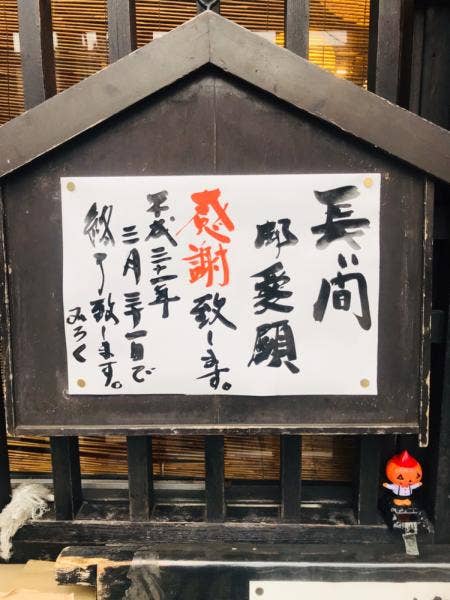 長い間
御愛顧
感謝致します。
平成三十一年
三月三十一日で
終了致します。
みろく